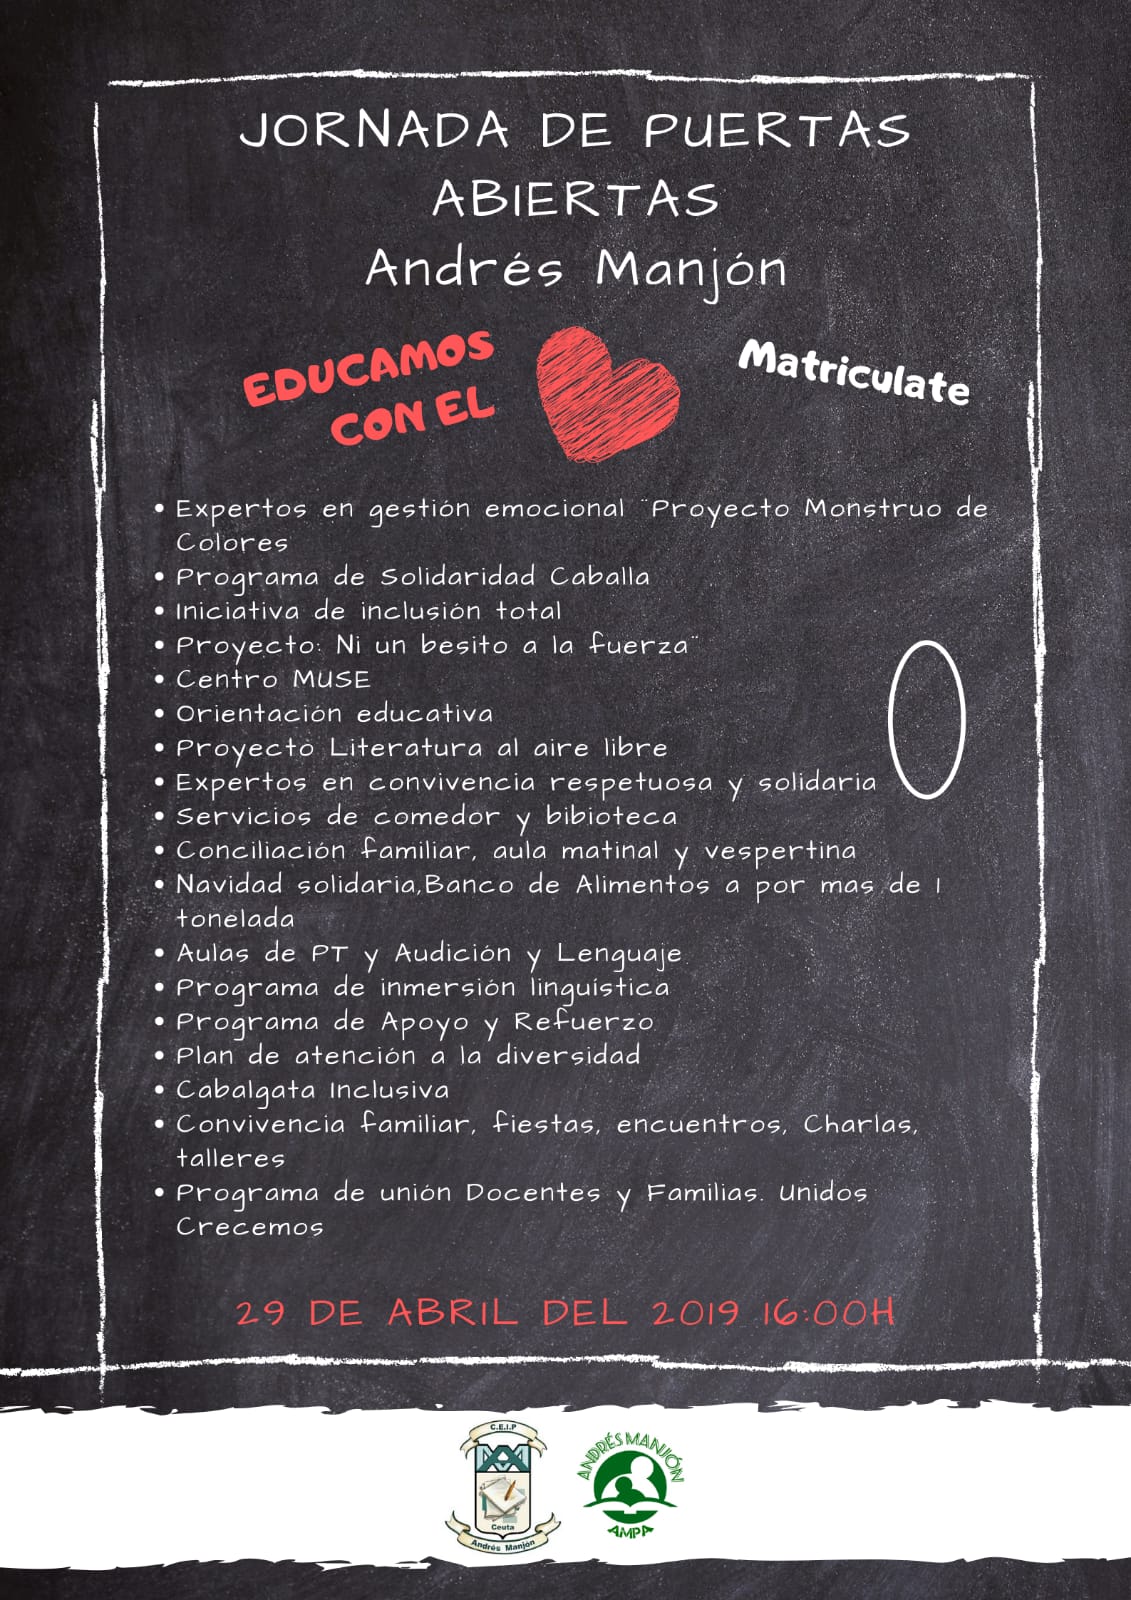 JORNADA DE PUERTAS
ABIERTAS
Andrés Manjón
EDUCAMOS
CON EL
Matriculate
• Expertos en gestión emocional ¨Proyecto Monstruo de
Colores
• Programa de Solidaridad Caballa
• Iniciativa de inclusión total
• Proyecto: Ni un besito a la fuerza¨
• Centro MUSE
• Orientación educativa
• Proyecto Literatura al aire libre
• Expertos en convivencia respetuosa y solidaria
• Servicios de comedor y bibioteca
• Conciliación familiar, aula matinal y vespertina
• Navidad solidaria,Banco de Alimentos a por mas de 1
tonelada
• Aulas de PT y Audición y Lenguaje
• Programa de inmersión linguística
• Programa de Apoyo y Refuerzo
• Plan de atención a la diversidad
• Cabalgata Inclusiva
• Convivencia familiar, fiestas, encuentros, Charlas,
talleres
• Programa de unión Docentes y Familias. Unidos
Crecemos
29 DE ABRIL DEL 2019 16:00H
C.E.I.P
Ceuta
Andrés Manjón
ANDRÉS MANJÓN
AMPA